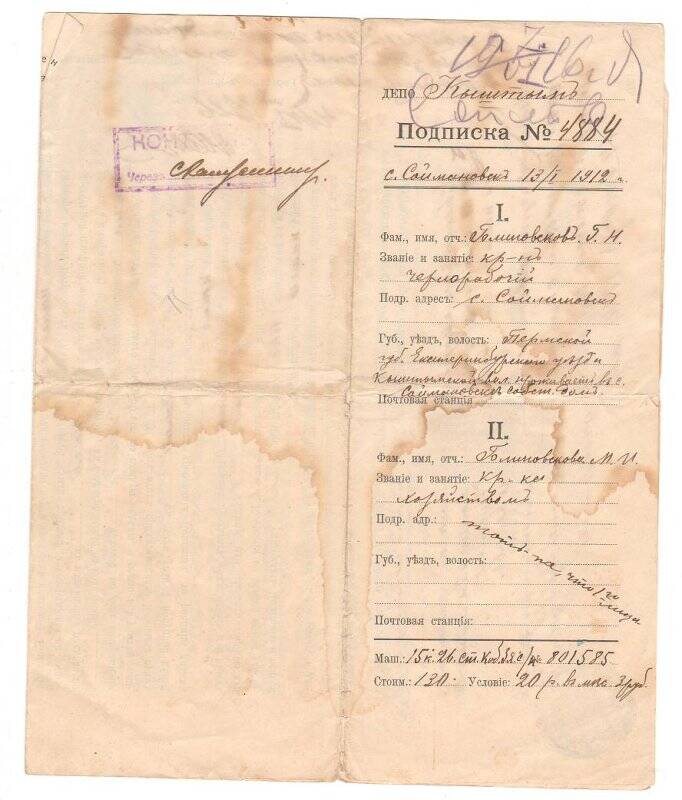 КОН
Через
ДЕПО Кыштымъ
Подписка № 4884
с. Соймановскъ 13/I 1912 г.
I.
Фам., имя, отч.: Блиновсковъ. Г. Н.
Званіе и занятіе: кр-нъ
чернорабочій
Подр. адресъ: с. Соймановскъ
Губ., уѣздъ, волость: Пермской
губ. Екатеринбургского уѣзда
Кыштымской вол. проживаетъ въ с.
Соймановскъ собст. домъ.
Почтовая станція
II.
Фам., имя, отч.: Блиновскова М. И.
Званіе и занятіе: кр-ка
хозяйствомъ
Подр. адр.:
что 1го
лица
Губ., уѣздъ, волость:
Почтовая станція:
Маш.: 15 к. 26. ст. № 801585
Стоим.: 120. Условіе: 20 р. въ мѣс 3 руб.